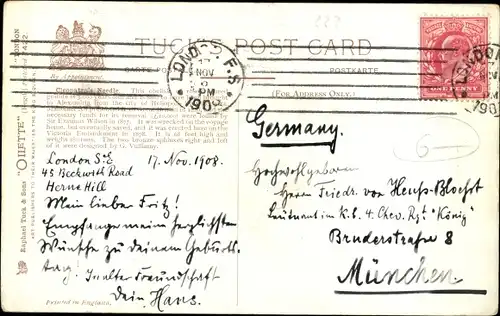 TUCK'S POST CARD
By Appointment.
CARTE POSTALE
POSTKARTE
(FOR ADDRESS ONLY.)
Cleopatra's Needle.
by Erasmus Wilson in 1877. It was wrecked on the voyage
home, but eventually saved, and it was erected here on the
Victoria Embankment in 1878. It is 68 feet high and
weighs 180 tons. The two bronze sphinxes right and left
of it were designed by G. Vulliamy.
Raphael Tuck & Sons' "OILETTE"
ART PUBLISHERS TO THEIR MAJESTIES
LONDON. F.S
NOV
PM
1908
ONE PENNY
LONDON
PM
190
6-
Germany.
London S.E. 17. Nov. 1908.
45 Beckwith Road
Herne Hill
Mein lieber Fritz!
Empfange meine herzlichsten
Wünsche zu deinem Geburts-
tag! In alter Freundschaft
Dein Hans.
Hochwohlgeboren
Herrn Friedr. von Heuss-Bloesst
Leutnant im K.b. 4. Chev. Rgt. "König"
Bruderstraße 8
München
Printed in England.